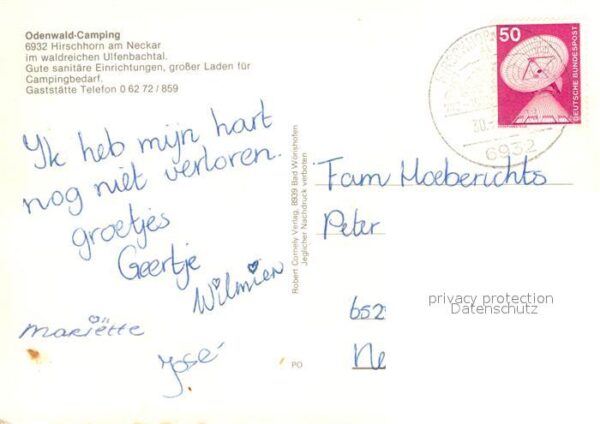 Odenwald-Camping
6932 Hirschhorn am Neckar
im waldreichen Ulfenbachtal.
Gute sanitäre Einrichtungen, großer Laden für
Campingbedarf.
Gaststätte Telefon 0 62 72 / 859
Ik heb mijn hart
nog niet verloren.
groetjes
Geertje
Wilmien
Mariëtte
José
Robert Cornely Verlag, 8939 Bad Wörishofen
Jeglicher Nachdruck verboten
PO
50
DEUTSCHE BUNDESPOST
30.
6932
Fam Hoeberichts
Peter
652
Ne
privacy protection
Datenschutz